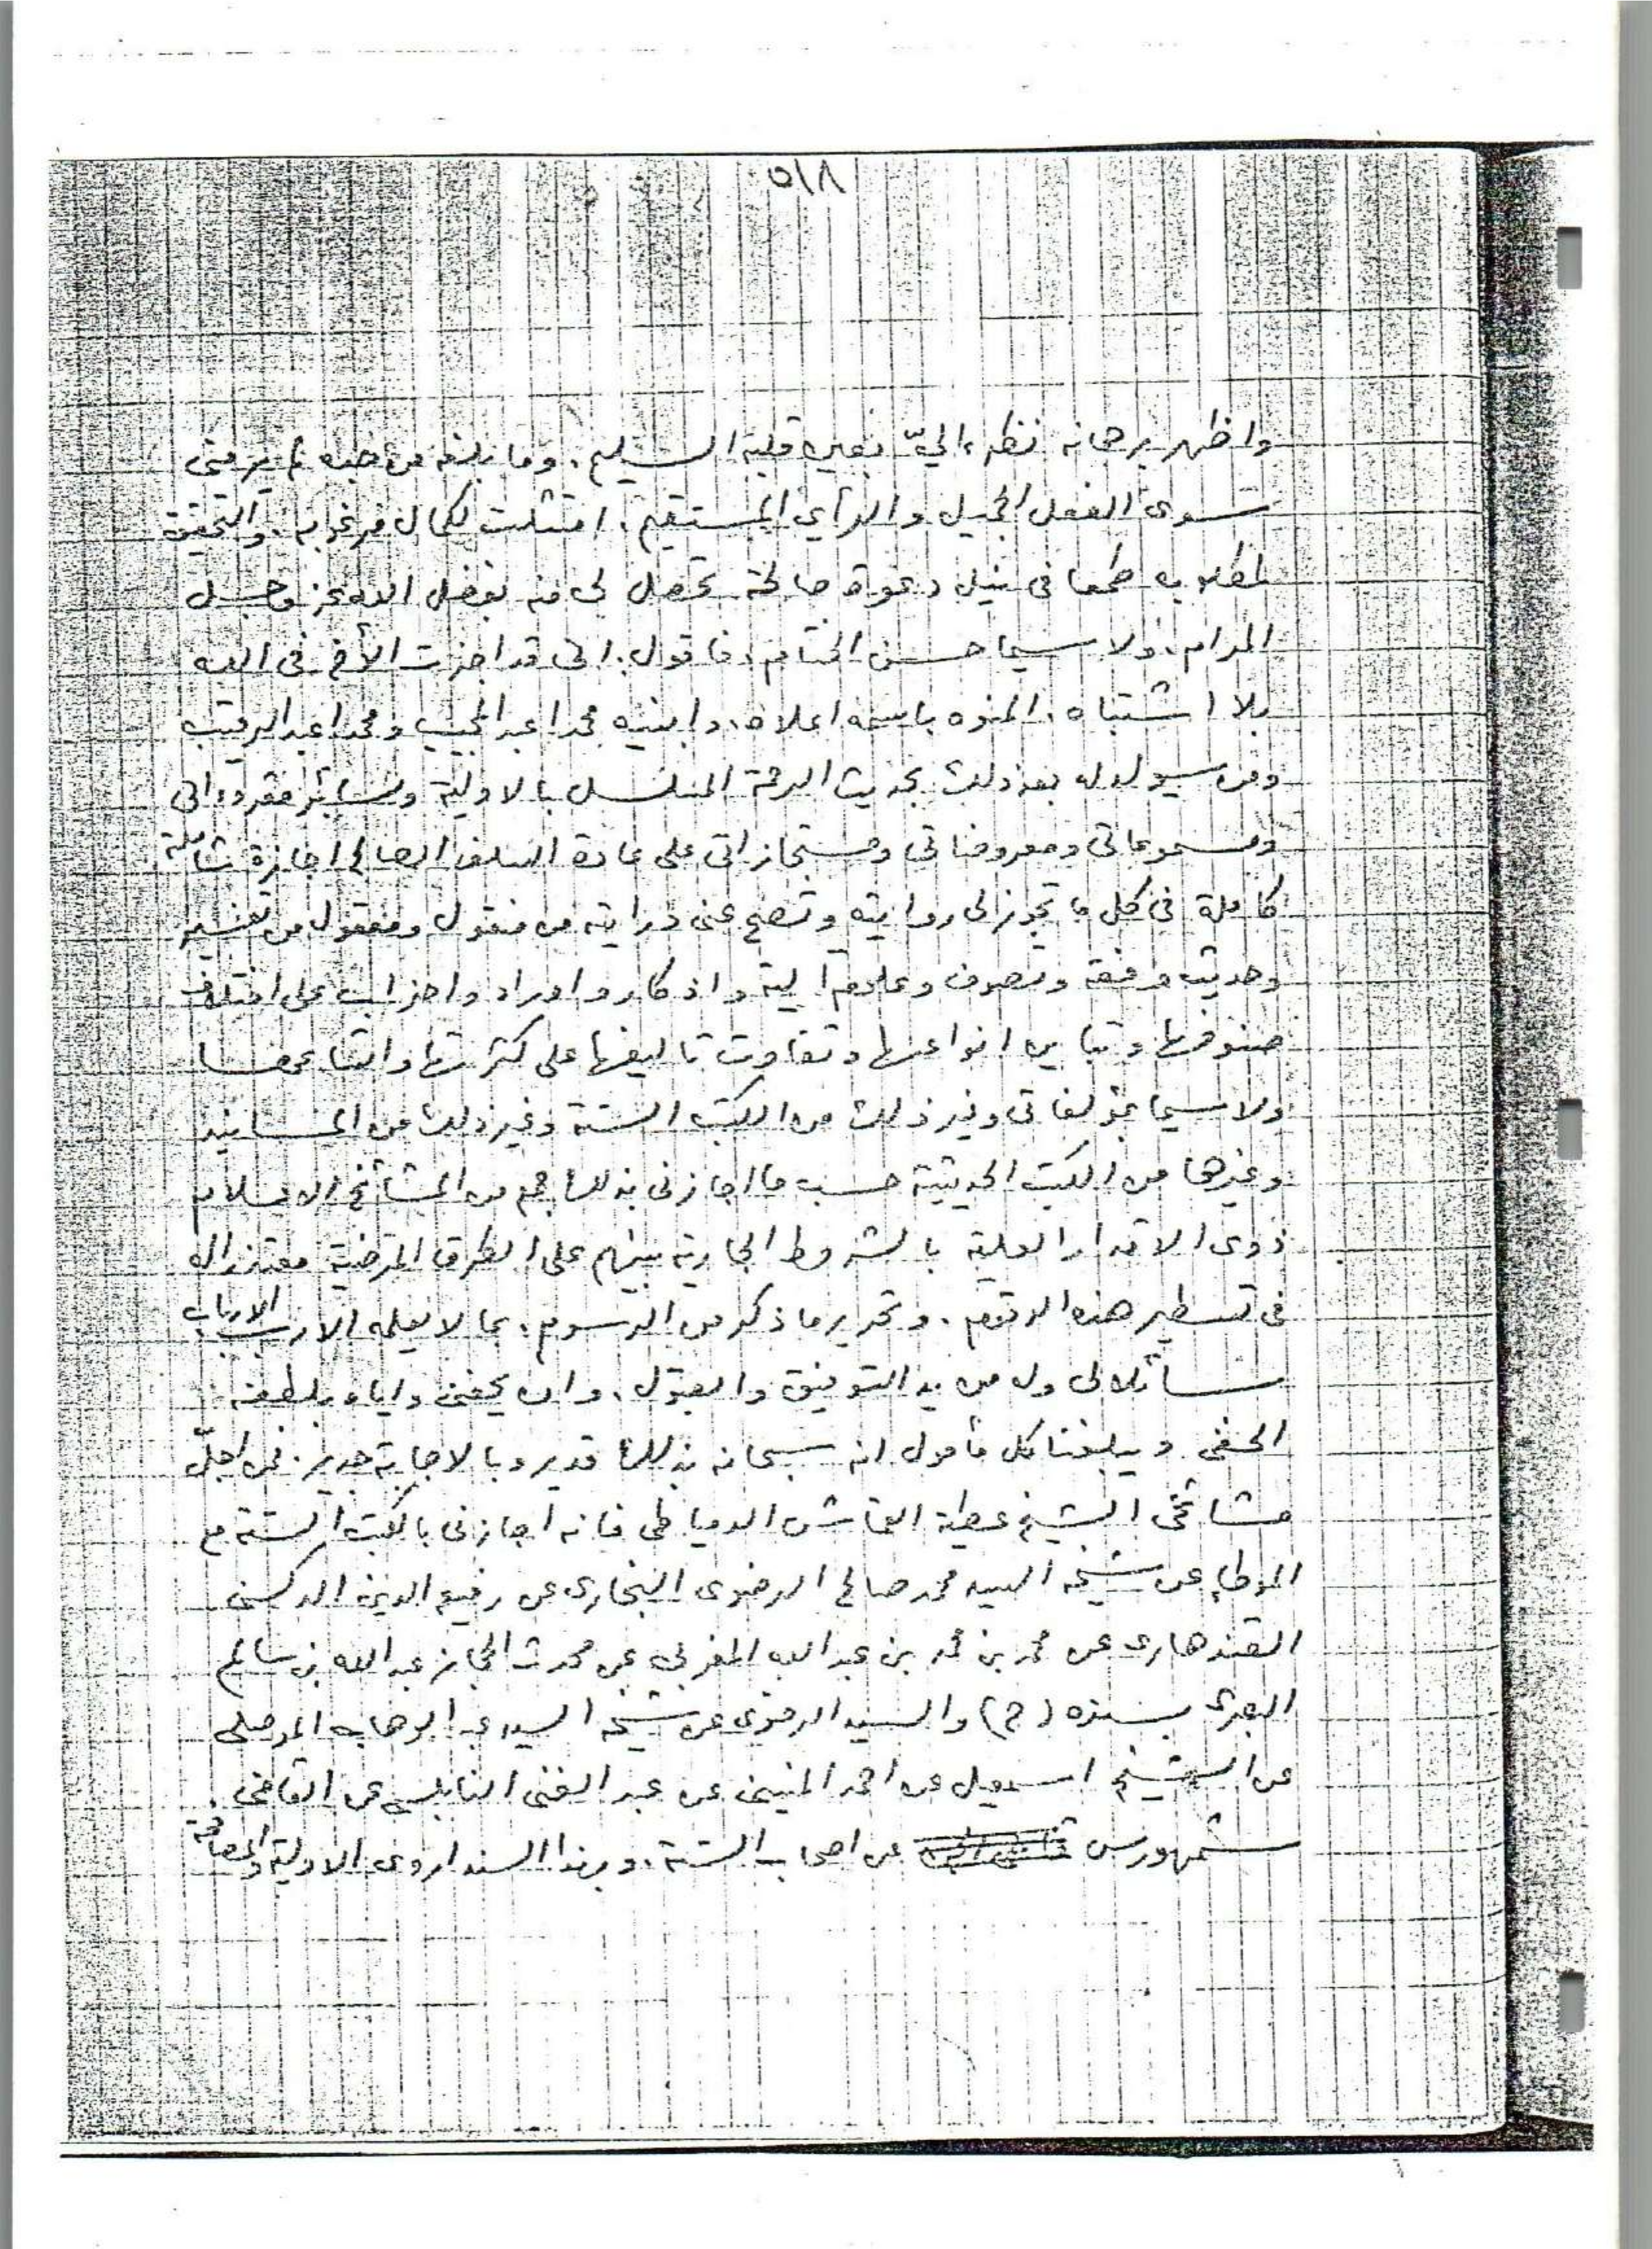 ٥١٨
واظهر برهانه نظره اليّ بعين قلبه السليم. وما بلغه من
سوى الفعل الجميل والرأي المستقيم. امتثلت لكمال مرغوبه. والتحقيق
لمطلوبه طمعا فى نيل دعوة صالحة تحصل لى منه بفضل الله عز وجل
المرام. ولا سيما حسن الختام. فاقول. انى قد اجزت الأخ فى الله
بلا اشتباه. المنوه باسمه اعلاه. وابنيه محمدا عبد المجيب ومحمدا عبد الرقيب
ومن سيولد له بعد ذلك بحديث الرحمة المسلسل بالاولية وبسائر مقروءاتى
ومسموعاتى ومعروضاتى ومستجازاتى على عادة السلف الصالح اجازة شاملة
كاملة فى كل ما تجوز لى روايته وتصح عنى درايته من منقول ومعقول من تفسير
وحديث وفقه وتصوف وعلوم آلية واذكار واوراد واحزاب على اختلاف
صنوفها وتباين انواعها وتفاوت تاليفها على كثرتها واتساعها
ولا سيما بمؤلفاتى وغير ذلك من الكتب الستة وغير ذلك من المسانيد
وغيرها من الكتب الحديثية حسب ما اجازنى بذلك جم من المشائخ الاعلام
ذوى الاقدار العلية بالشروط الجارية بينهم على الطرق المرضية معتذرا له
فى تسطير هذه الرقوم. وتحرير ما ذكر من الرسوم. بما لا يعلمه الا رب الارباب
سائلا لى وله مزيد التوفيق والقبول. وان يحفنى واياه بلطفه
الخفى ويبلغنا كل مأمول انه سبحانه بذلك قدير وبالاجابة جدير. فمن اجلّ
مشائخى الشيخ عطية القماش الدمياطى فانه اجازنى بالكتب الستة مع
الموطإ عن شيخه السيد محمد صالح الرضوى البخارى عن رفيع الدين الدكنى
القندهارى عن محمد بن محمد بن عبد الله المغربى عن محدث الحجاز عبد الله بن سالم
البصرى بسنده (ح) والسيد الرضوى عن شيخه السيد عبد الوهاب الموصلى
عن الشيخ اسمعيل عن احمد المنينى عن عبد الغنى النابلسى عن القاضى
شمهورس عن اصحاب الستة. وبهذا السند اروى الاولية والمصافحة